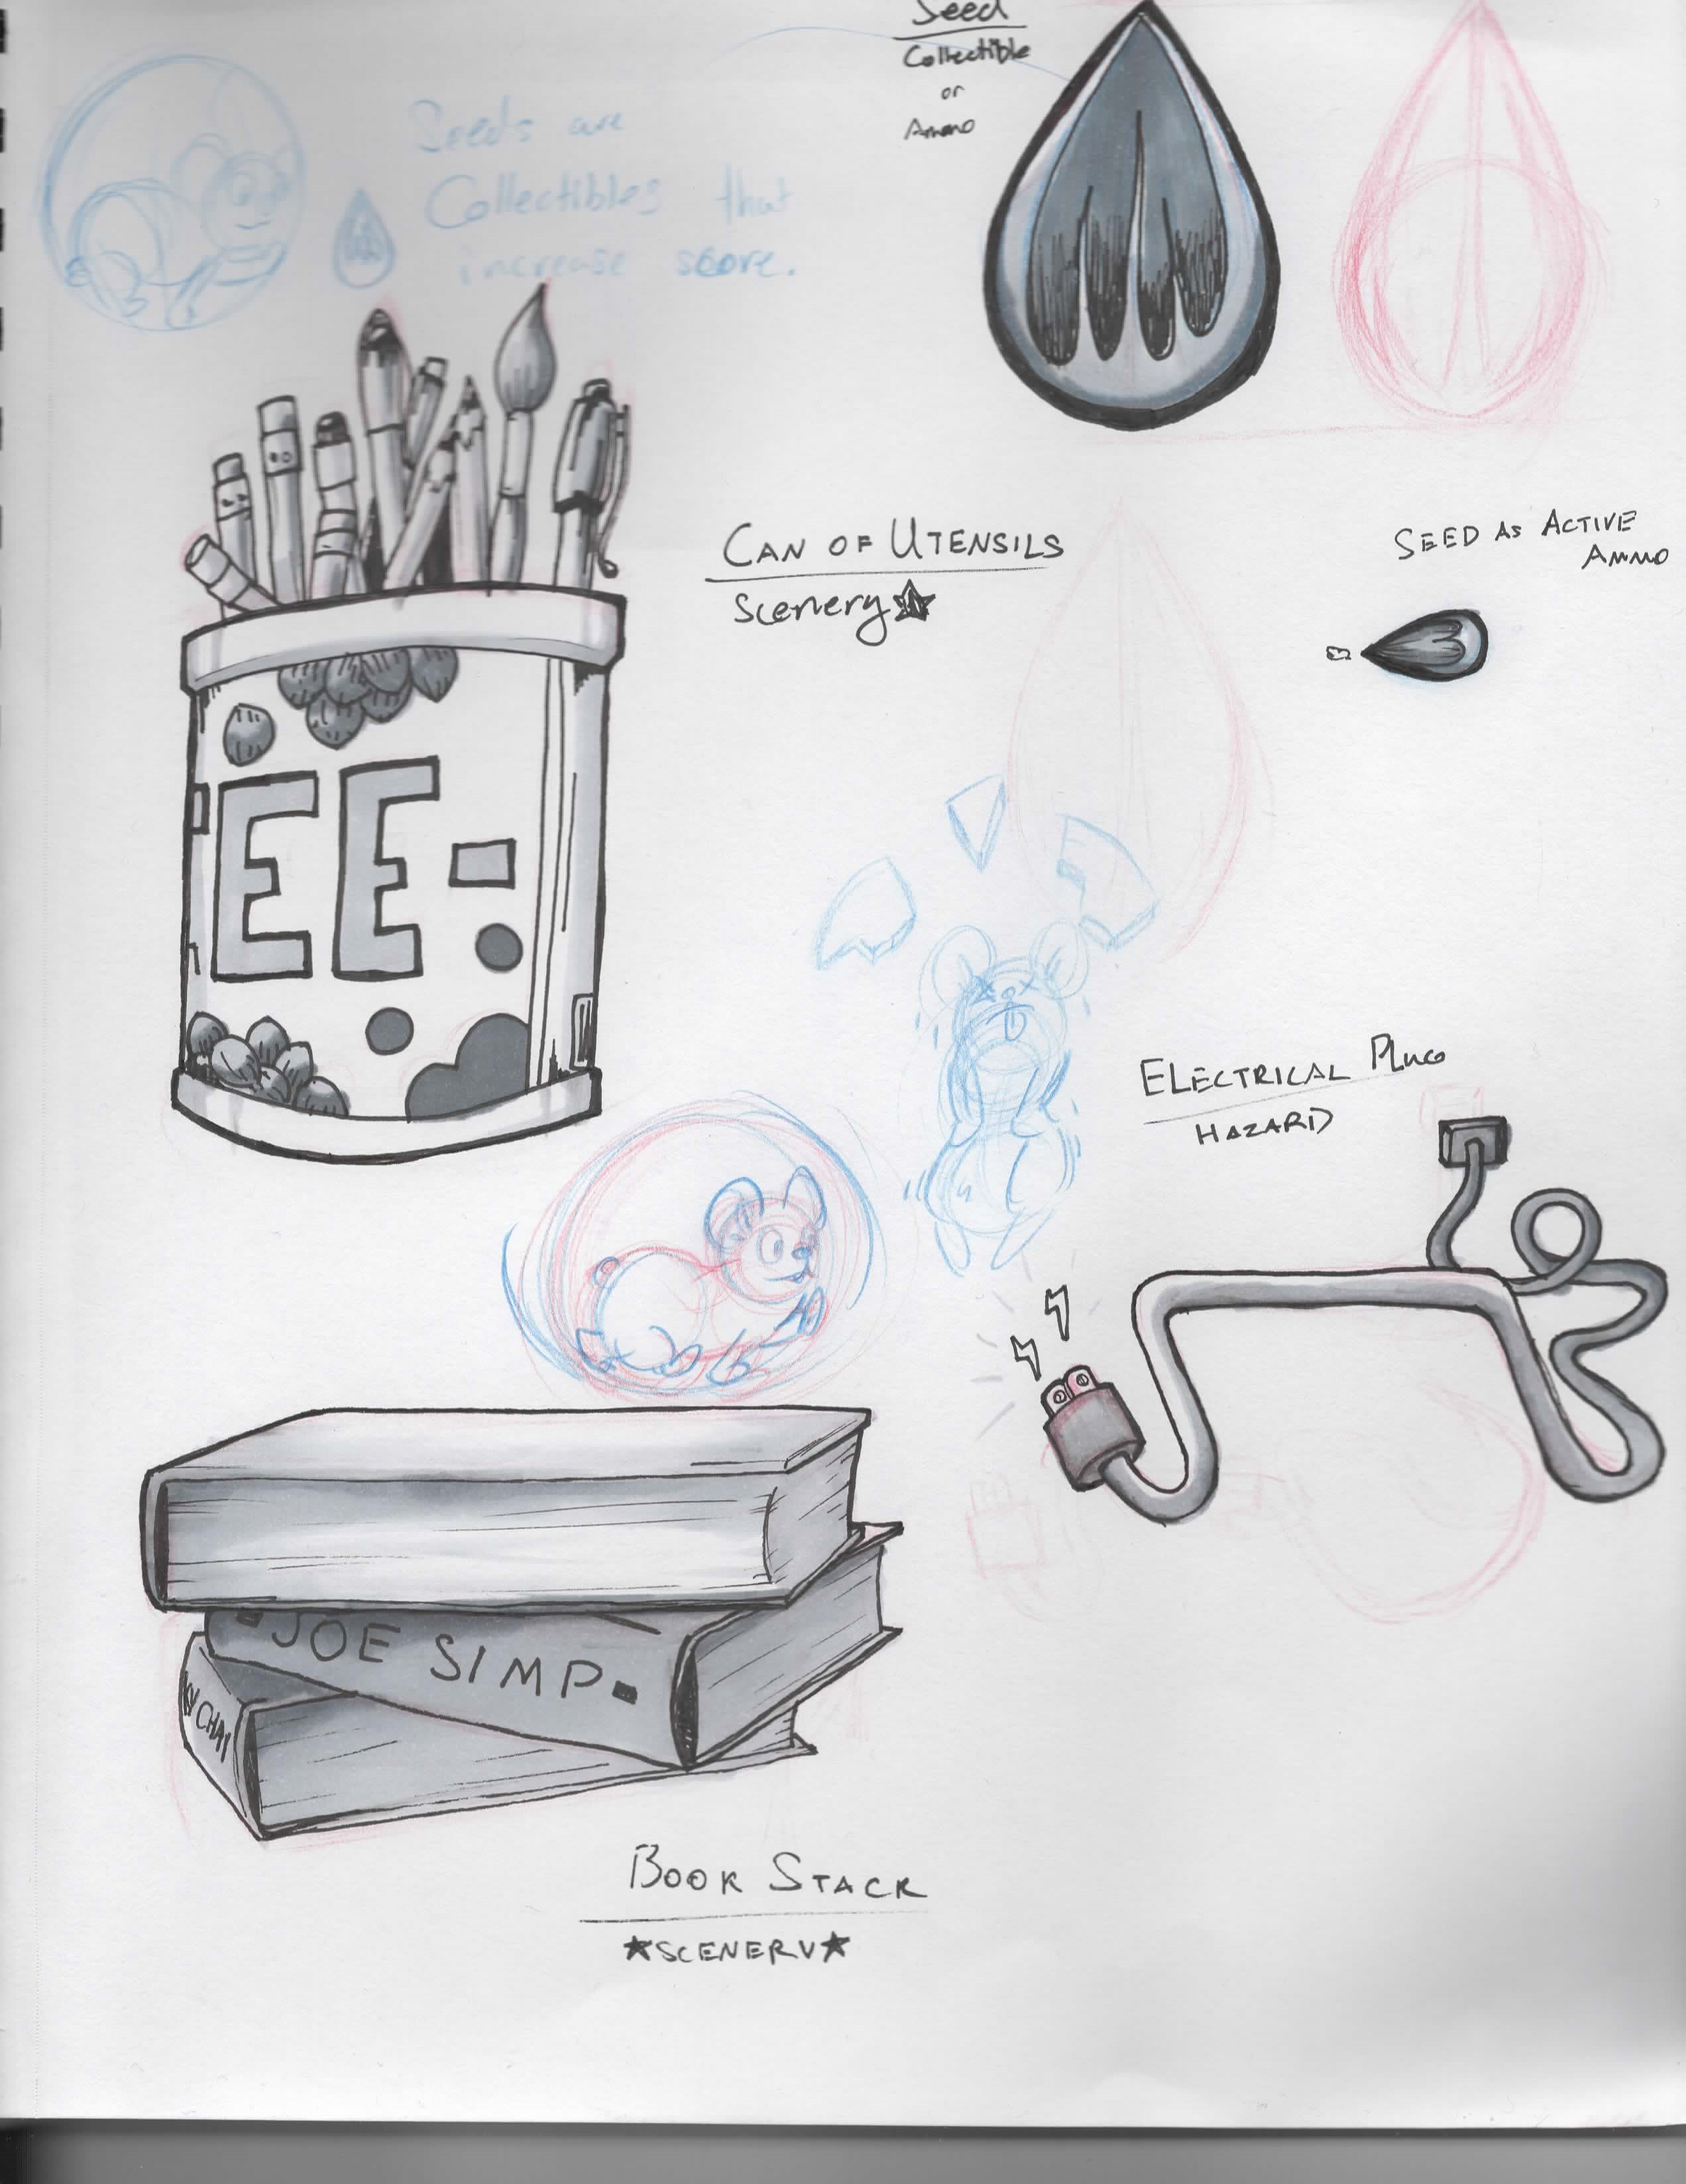 Seed
Collectible
or
Ammo
Seeds are
Collectibles that
increase score.
CAN OF UTENSILS
Scenery
SEED AS ACTIVE
AMMO
EE-
ELECTRICAL PLUG
HAZARD
JOE SIMP
KY CHAI
BOOK STACK
★SCENERY★